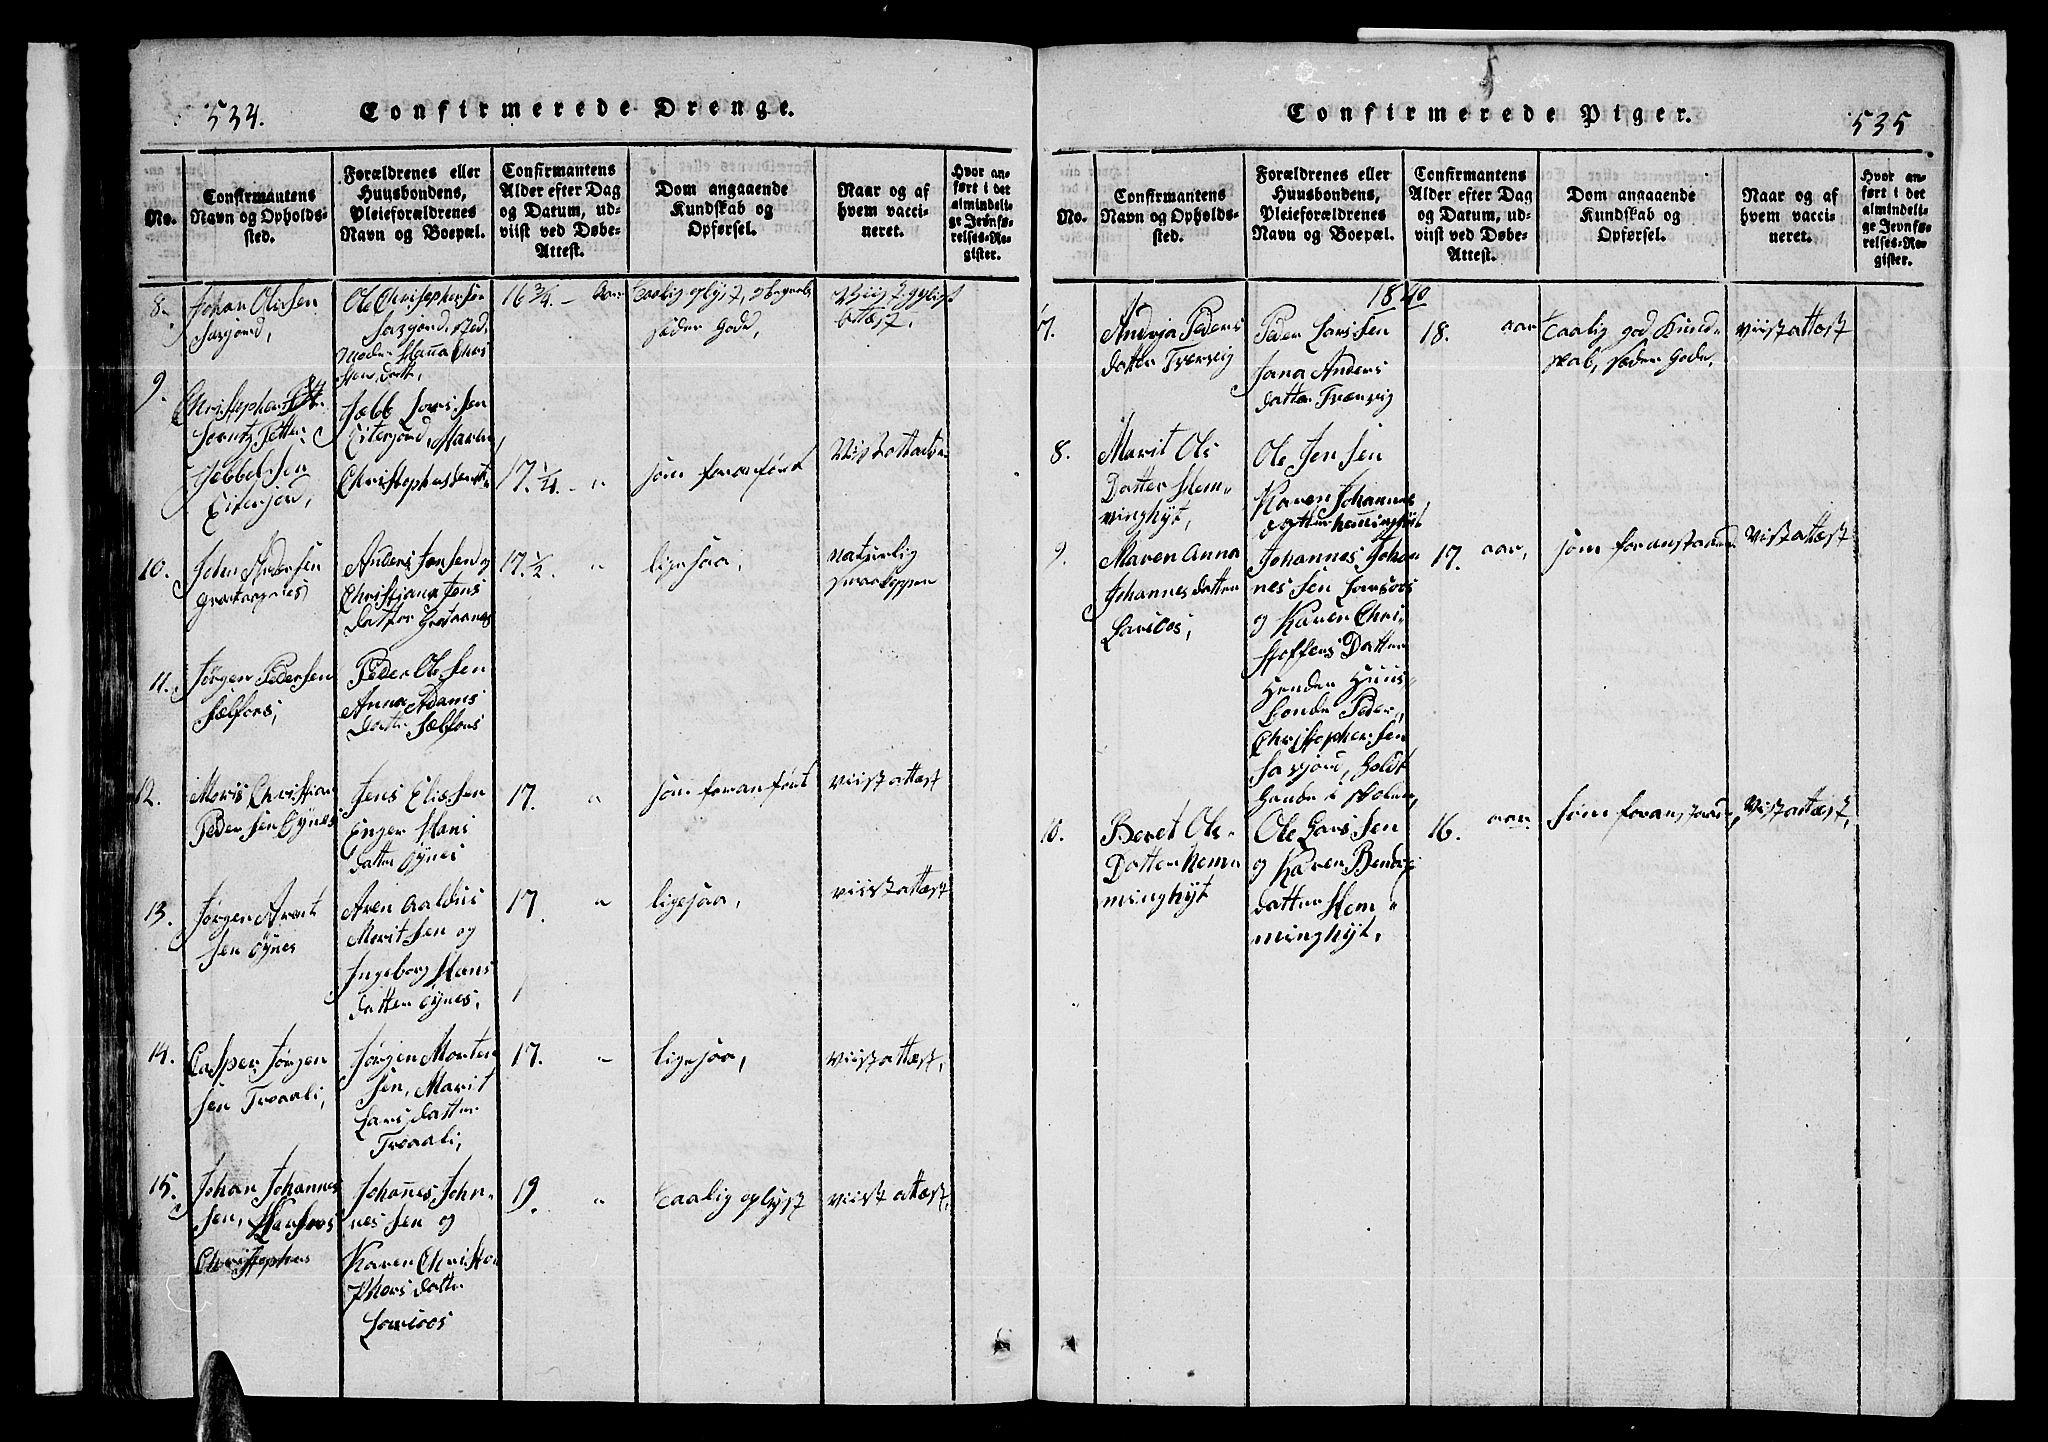 534.
Confirmerede Drenge.
No.
Confirmantens
Navn og Opholds-
sted.
Forældrenes eller
Huusbondens,
Pleieforældrenes
Navn og Boepæl.
Confirmantens
Alder efter Dag
og Datum, ud-
viist ved Døbe-
Attest.
Dom angaaende
Kundskab og
Opførsel.
Naar og af
hvem vacci-
neret.
Hvor an-
ført i det
almindeli-
ge Jevnfø-
relses-Re-
gister.
8.
Johan Olissen
Saxgjord,
Ole Christophersen
Saxgjord, sted,
Moder Hanna Chris
16 3/4 - Aar
Taalig oplyst,
sæder Gode,
9.
Christopher
Lorentz Petter
Jebbessen
Eiterjord,
Jæbb Larssen
Eiterjord, Maren
Christophersdatt
17 1/4 - "
som foranført
Viist attest
10.
John Andersen
Anders Jonsen og
Christiana Jons
Datter
17 1/2. "
ligesaa,
naturlig
11.
Jørgen Pedersen
Sælfors,
Peder Olssen
Anna Adams
Datter Sælfors
12.
Moris Christian
Pedersen Øynes
Jens Elissen
Enger Hans
datter Øynes
17. "
som foranført
viist attest
13.
Jørgen Arent
sen Øynes
Aren Aaldus
Moritsen og
Ingeborg Hans
datter Øynes,
17 "
ligesaa,
viist attest
14.
Casper Jørgen
sen Troaali,
Jørgen Morten
sen, Marit
Lars datter
Troaali,
17. "
ligesaa,
viist attest,
15.
Johan Johannes
sen,
Christophers
Johanes Joha-
nessen og
Karen Christo
phers datter
Larsoos
19. "
Taalig oplyst
viist attest,
Confirmerede Piger.
535
No.
Confirmantens
Navn og Opholds-
sted.
Forældrenes eller
Huusbondens,
Pleieforældrenes
Navn og Boepæl.
Confirmantens
Alder efter Dag
og Datum, ud-
viist ved Døbe-
Attest.
Dom angaaende
Kundskab og
Opførsel.
Naar og af
hvem vacci-
neret.
Hvor an-
ført i det
almindeli-
ge Jevnfø-
relses-Re-
gister.
1840
7.
Andrja Peders
datter Trærvig
Peder Larssen
Jana Anders
datter Trærvig
18. aar
Taalig god Kund-
skab, sæder Gode,
viist attest
8.
Marit Ols
Datter Hem-
minghyt,
Ole Jenssen
Karen Johannes
datter heminghyt
9.
Maren Anna
Johannesdatter
Larsoos,
Johannes Johan
nessen Larsoos
og Karen Chri-
stoffers Datter
Hendes Huus-
bonde Peder
Christophersen
Saxjord, Holdt
hende i skolen,
17. aar,
som foranstaaende
viist attest
10.
Beret Ols-
Datter hem-
minghyt
Ole Larssen
og Karen Bendix
datter Hem-
minghyt.
16. aar
som foranstaaende,
viist attest,